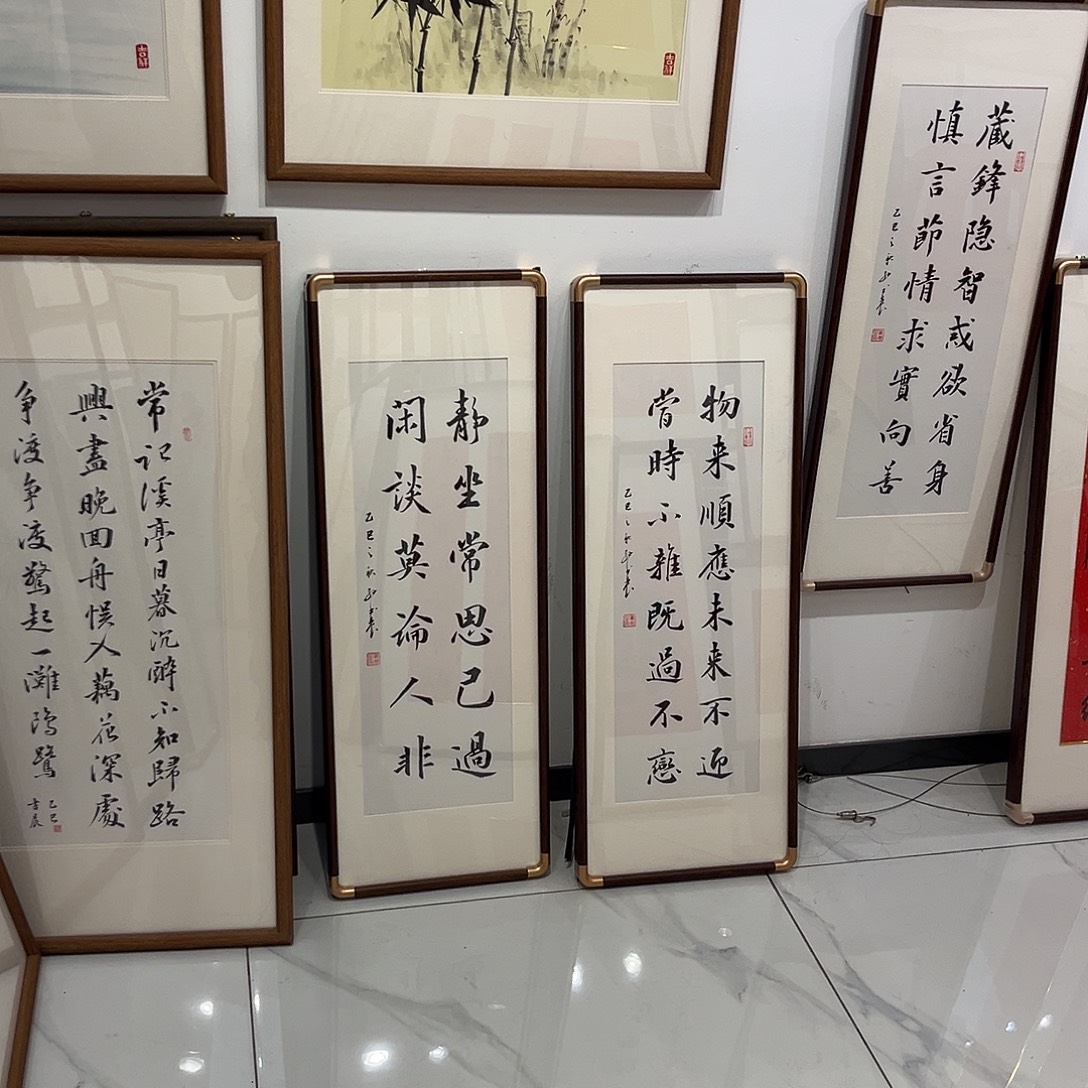 常记溪亭日暮沉醉不知歸路
興盡晚回舟悮入藕花深處
争渡争渡驚起一灘鸥鹭
乙巳
静坐常思己過
闲談莫論人非
乙巳之秋
物来順應未来不迎
當時不雜既過不戀
乙巳之秋
藏鋒隐智戒欲省身
慎言節情求實向善
乙巳之秋
吉祥
吉祥